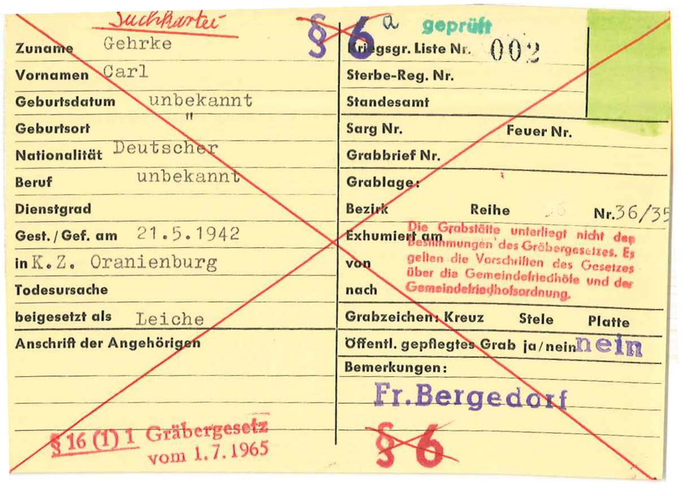 Suchkartei
Zuname Gehrke
Vornamen Carl
Geburtsdatum unbekannt
Geburtsort "
Nationalität Deutscher
Beruf unbekannt
Dienstgrad
Gest. / Gef. am 21.5.1942
in K.Z. Oranienburg
Todesursache
beigesetzt als Leiche
Anschrift der Angehörigen
§ 16 (1) 1 Gräbergesetz
vom 1.7.1965
§ 6 a geprüft
Kriegsgr. Liste Nr. 002
Sterbe-Reg. Nr.
Standesamt
Sarg Nr. Feuer Nr.
Grabbrief Nr.
Grablage:
Bezirk Reihe Nr. 36/35
Exhumiert am
von
nach
Die Grabstätte unterliegt nicht den
Bestimmungen des Gräbergesetzes. Es
gelten die Vorschriften des Gesetzes
über die Gemeindefriedhöfe und der
Gemeindefriedhofsordnung.
Grabzeichen: Kreuz Stele Platte
Öffentl. gepflegtes Grab ja/nein nein
Bemerkungen:
Fr. Bergedorf
§ 6